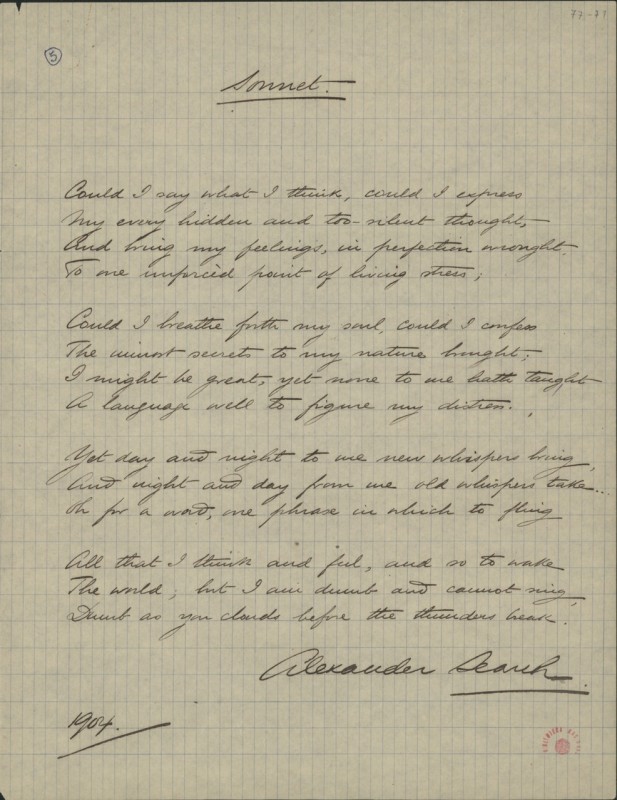 77-71
5
Sonnet.
Could I say what I think, could I express
My every hidden and too-silent thought,
And bring my feelings, in perfection wrought,
To one unforced point of living stress;
Could I breathe forth my soul, could I confess
The inmost secrets to my nature brought;
I might be great, yet none to me hath taught
A language well to figure my distress.
Yet day and night to me new whispers bring,
And night and day from me old whispers take...
Oh for a word, one phrase in which to fling
All that I think and feel, and so to wake
The world; but I am dumb and cannot sing,
Dumb as yon clouds before the thunders break.
Alexander Search
1904.